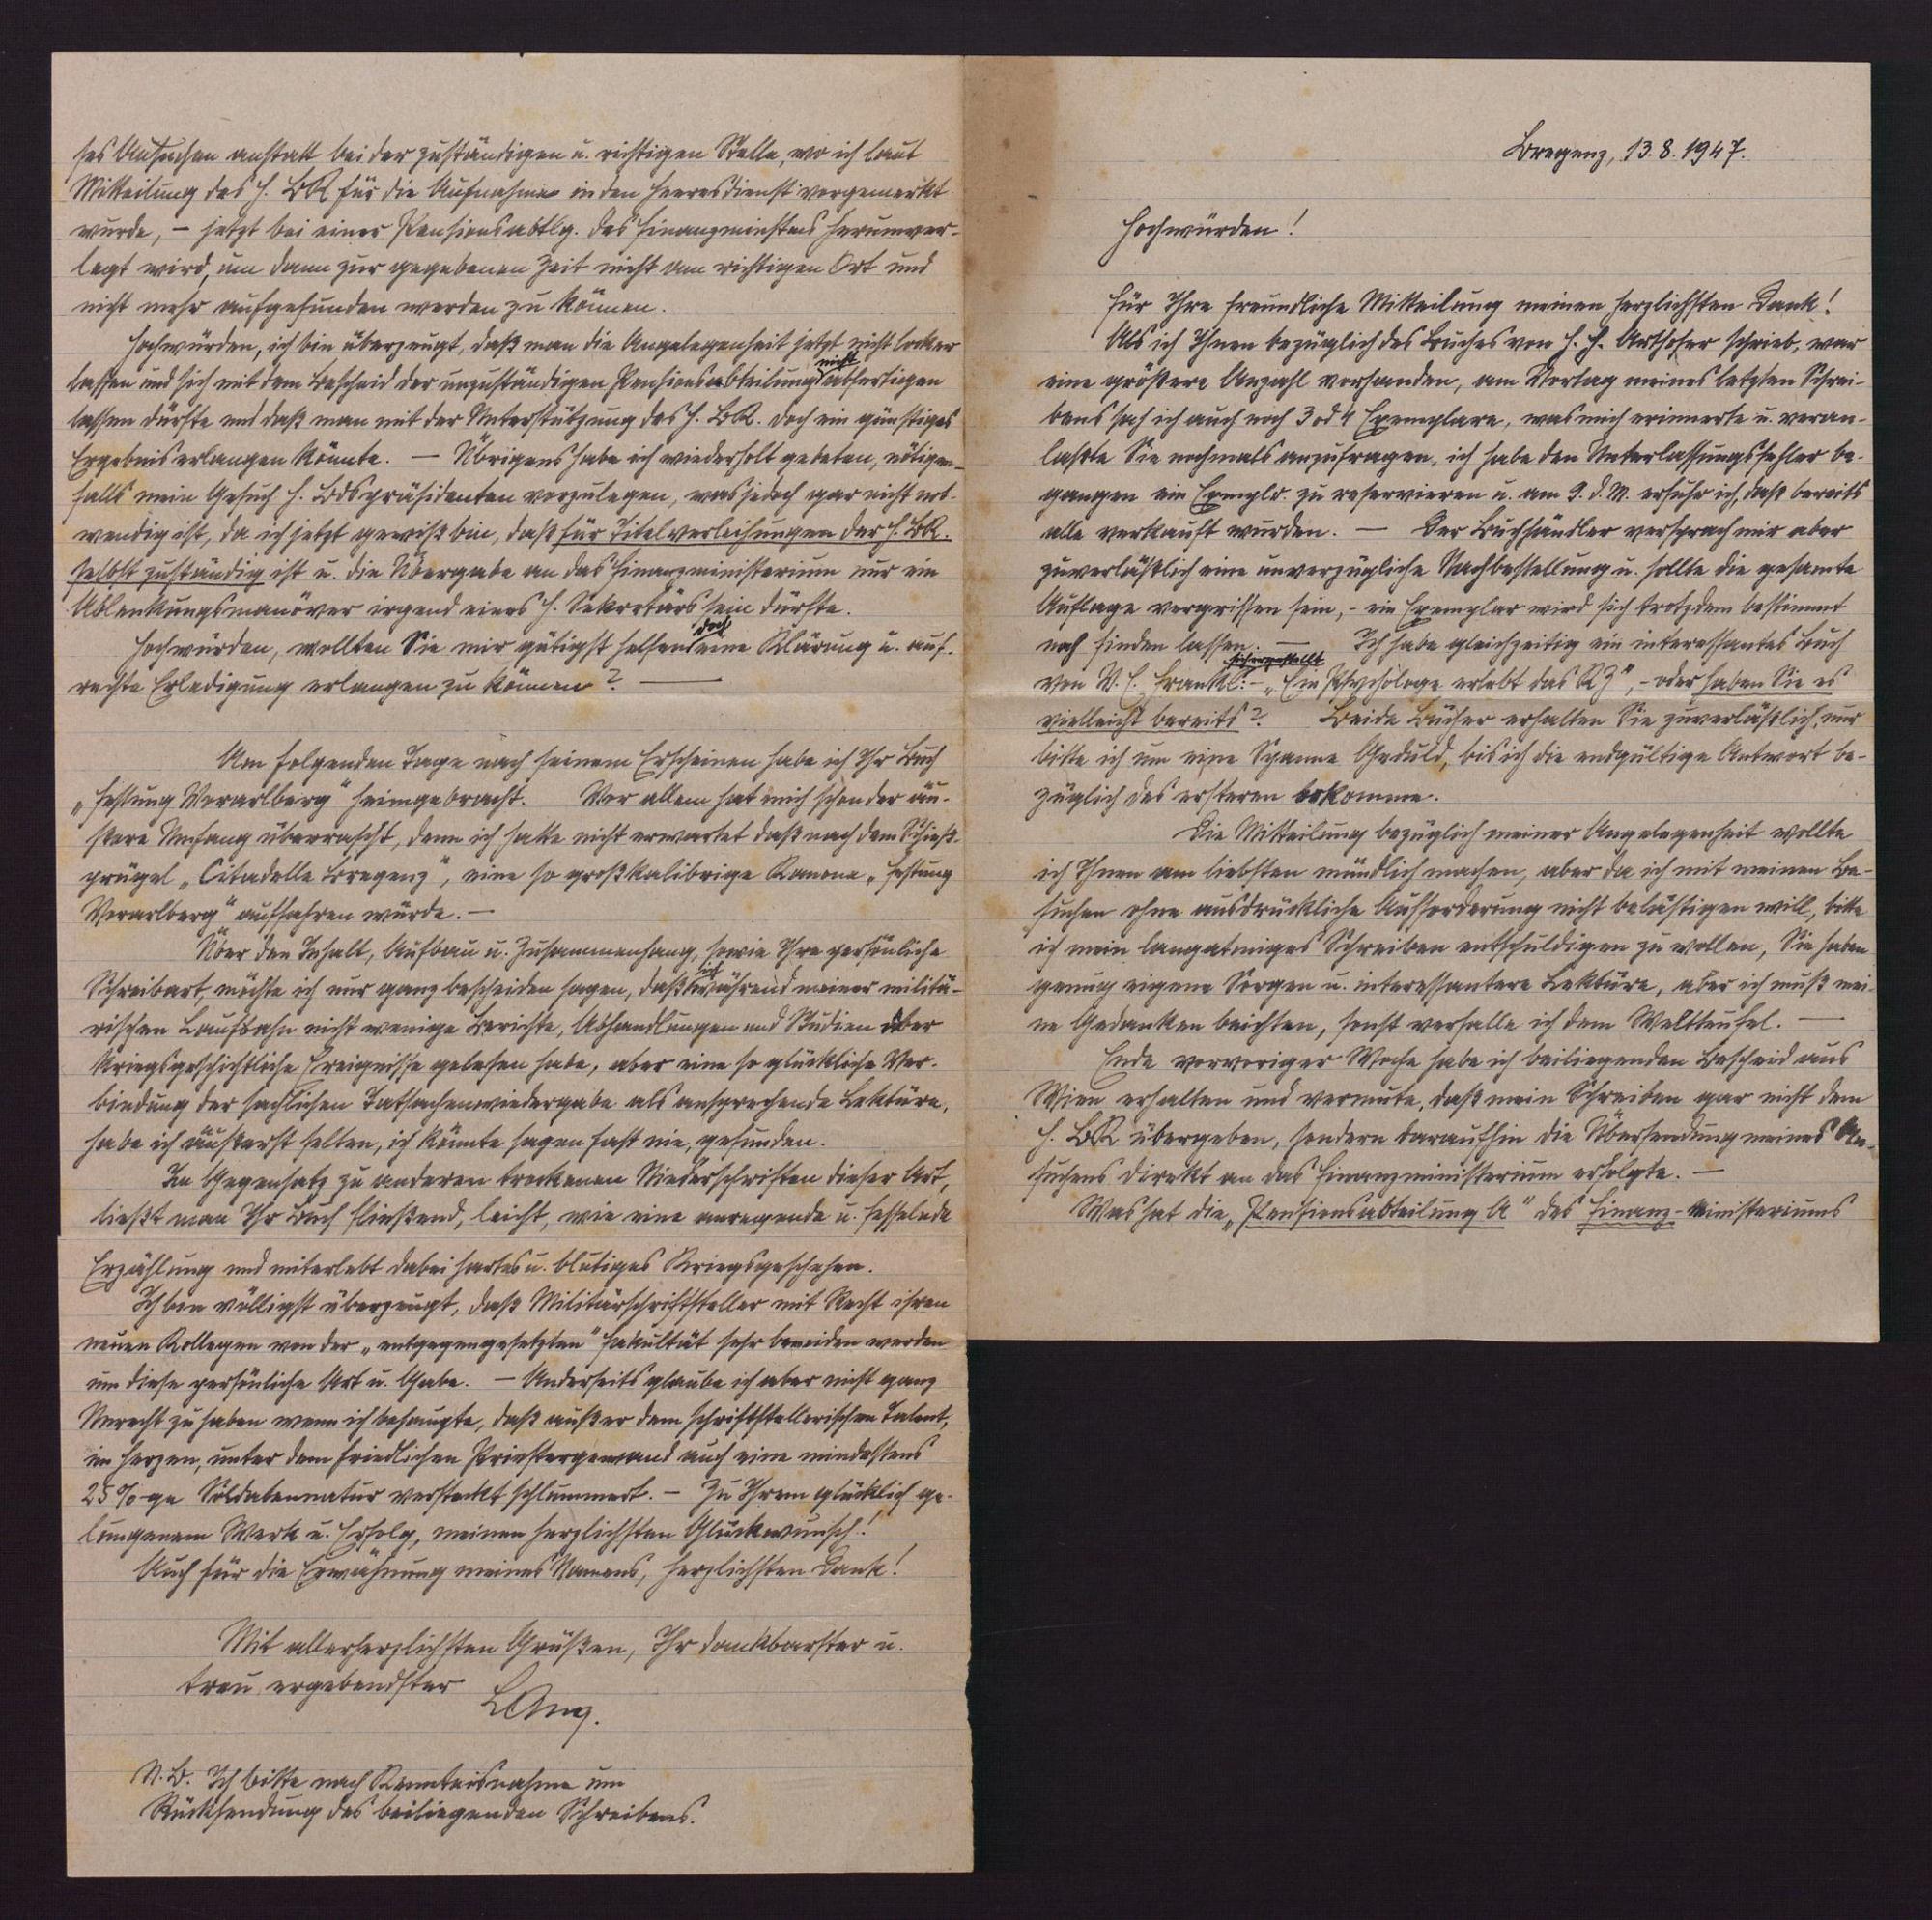 Bregenz, 13.8.1947.
Hochwürden!
Für Ihre freundliche Mitteilung meinen herzlichsten Dank!
Als ich Ihnen bezüglich des Buches von H. H. Arthofer schrieb, war
eine größere Anzahl vorhanden, am Vortag meines letzten Schrei-
bens sah ich auch noch 3 od 4 Exemplare, was mich erinnerte u. veran-
laßte Sie nochmals anzufragen, ich habe den Unterlassungsfehler be-
gangen ein Exmplr. zu reservieren u. am 9. d. M. erfuhr ich, daß bereits
alle verkauft wurden. — Der Buchhändler versprach mir aber
zuverläßlich eine unverzügliche Nachbestellung u. sollte die gesamte
Auflage vergriffen sein, - ein Exemplar wird sich trotzdem bestimmt
noch finden lassen. — Ich habe gleichzeitig ein interessantes Buch
sichergestellt
von V. E. Frankl: - „Ein Psychologe erlebt das KZ", - oder haben Sie es
vielleicht bereits? Beide Bücher erhalten Sie zuverläßlich, nur
bitte ich um eine Spanne Geduld, bis ich die endgültige Antwort be-
züglich des ersteren bekomme.
Die Mitteilung bezüglich meiner Angelegenheit wollte
ich Ihnen am liebsten mündlich machen, aber da ich mit meinen Be-
suchen ohne ausdrückliche Aufforderung nicht belästigen will, bitte
ich mein langatmiges Schreiben entschuldigen zu wollen, Sie haben
genug eigene Sorgen u. interessantere Lektüre, aber ich muß mei-
ne Gedanken beichten, sonst verfalle ich dem Weltteufel. —
Ende vorvoriger Woche habe ich beiliegenden Bescheid aus
Wien erhalten und vermute, daß mein Schreiben gar nicht dem
H. BK übergeben, sondern daraufhin die Übersendung meines An-
suchens direkt an das Finanzministerium erfolgte. —
Was hat die „Pensionsabteilung A" des Finanz-Ministeriums
ses Ansuchen anstatt bei der zuständigen u. richtigen Stelle, wo ich laut
Mitteilung des H. BK für die Aufnahme in den Heeresdienst vorgemerkt
wurde, - jetzt bei einer Pensionsabtlg. des Finanzminstms herumver-
legt wird, um dann zur gegebenen Zeit nicht am richtigen Ort und
nicht mehr aufgefunden werden zu können.
Hochwürden, ich bin überzeugt, daß man die Angelegenheit jetzt nicht locker
nicht
lassen und sich mit dem Bescheid der unzuständigen Pensionsabteilung abfertigen
lassen dürfte und daß man mit der Unterstützung des H. BK. doch ein günstiges
Ergebnis erlangen könnte. — Übrigens habe ich wiederholt gebeten, nötigen-
falls mein Gesuch H. Bdspräsidenten vorzulegen, was jedoch gar nicht not-
wendig ist, da ich jetzt gewiß bin, daß für Titelverleihungen der H. BK.
selbst zuständig ist u. die Übergabe an das Finanzministerium nur ein
Ablenkungsmanöver irgend eines H. Sekretärs sein dürfte.
doch
Hochwürden, wollten Sie mir gütigst helfen eine Klärung u. auf-
rechte Erledigung erlangen zu können? —
Am folgenden Tage nach seinem Erscheinen habe ich Ihr Buch
„Festung Vorarlberg" heimgebracht. Vor allem hat mich schon der äu-
ßere Umfang überrascht, denn ich hatte nicht erwartet daß nach dem Schieß-
prügel „Citadelle Bregenz", eine so großkalibrige Kanone „Festung
Vorarlberg" auffahren würde. —
Über den Inhalt, Aufbau u. Zusammenhang, sowie Ihre persönliche
ich
Schreibart, möchte ich nur ganz bescheiden sagen, daß während meiner militä-
rischen Laufbahn nicht wenige Berichte, Abhandlungen und Studien über
kriegsgeschichtliche Ereignisse gelesen habe, aber eine so glückliche Ver-
bindung der sachlichen Tatsachenwiedergabe als ansprechende Lektüre,
habe ich äußerst selten, ich könnte sagen fast nie, gefunden.
Im Gegensatz zu anderen trockenen Niederschriften dieser Art,
ließt man Ihr Buch fließend, leicht, wie eine anregende u. fesselnde
Erzählung und miterlebt dabei hartes u. blutiges Kriegsgeschehen.
Ich bin völligst überzeugt, daß Militärschriftsteller mit Recht ihren
neuen Kollegen von der „entgegengesetzten" Fakultät sehr beneiden werden
um diese persönliche Art u. Gabe. — Anderseits glaube ich aber nicht ganz
Unrecht zu haben wenn ich behaupte, daß außer dem schriftstellerischen Talent,
im Herzen, unter dem friedlichen Priestergewand auch eine mindestens
25%-ge Soldatennatur versteckt schlummert. — Zu Ihrem glücklich ge-
lungenem Werk u. Erfolg, meinen herzlichsten Glückwunsch!
Auch für die Erwähnung meines Namens, herzlichsten Dank!
Mit allerherzlichsten Grüßen, Ihr dankbarster u.
treu ergebendster
N.B. Ich bitte nach Kenntnisnahme um
Rücksendung des beiliegenden Schreibens.